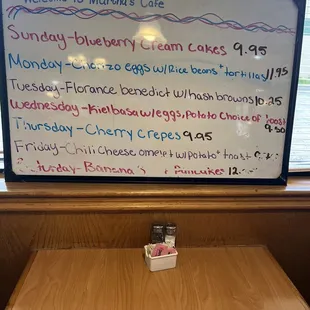 Welcome to Martha's Cafe
Sunday-blueberry Cream Cakes 9.95
Monday-Chorizo eggs w/Rice beans + tortilla 11.95
Tuesday-Florance benedict w/hash browns 10.25
Wednesday-Kielbasa w/eggs, Potato Choice of Toast
9.50
Thursday-Cherry Crepes 9.95
Friday-Chili Cheese omelet w/ potato + toast
Saturday-Banana's Pancakes 12.